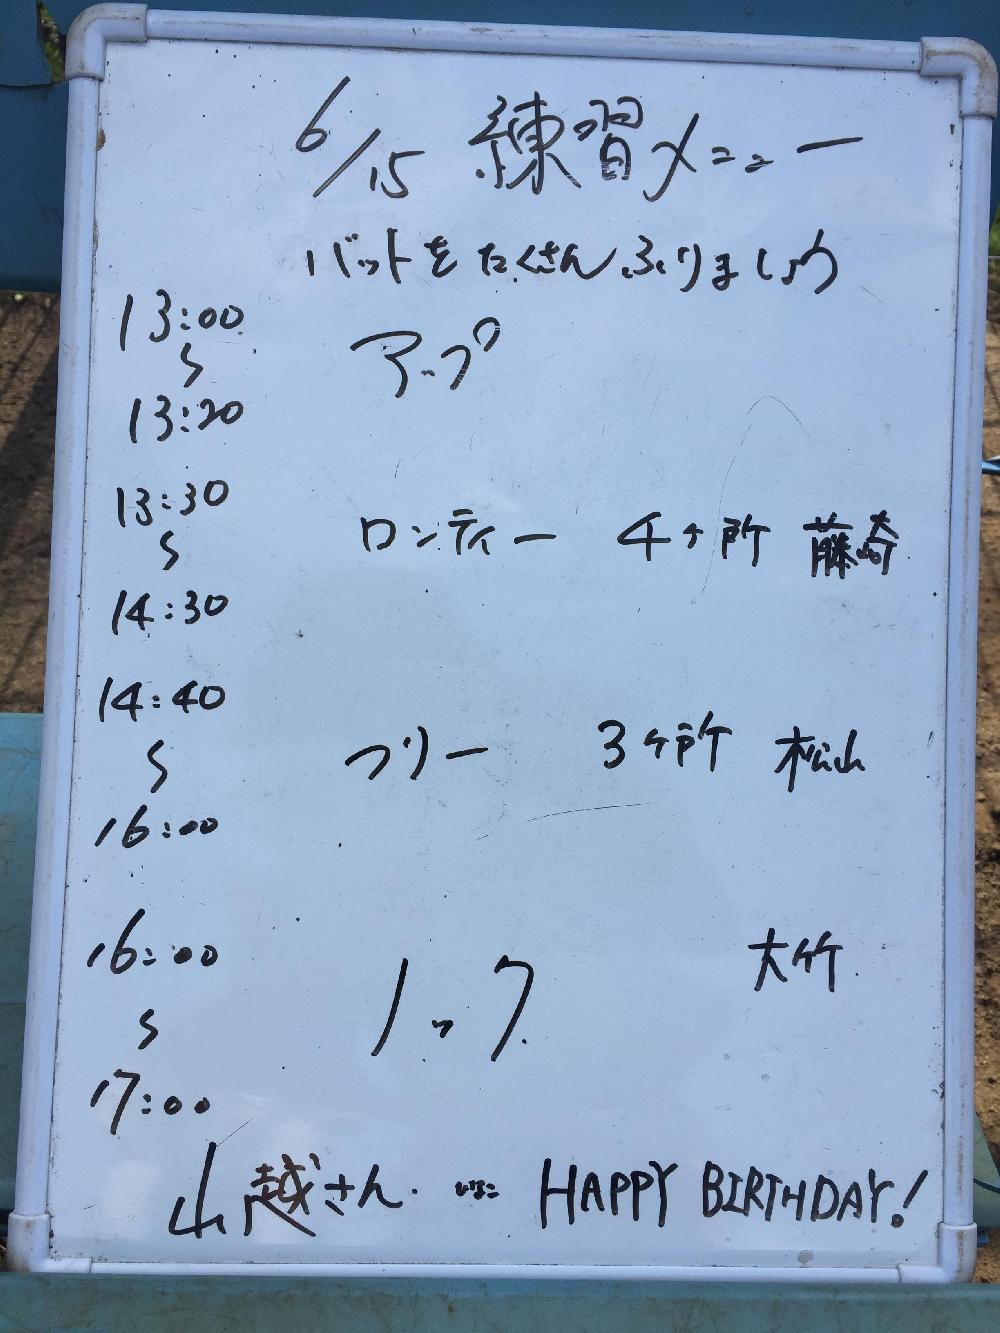 6/15 練習メニュー
バットをたくさんふりましょう
13:00
アップ
13:20
13:30
ロンティー 4ヶ所 藤崎
14:30
14:40
フリー 3ヶ所 松山
16:00
16:00
ノック 大竹
17:00
山越さん HAPPY BIRTHDAY!